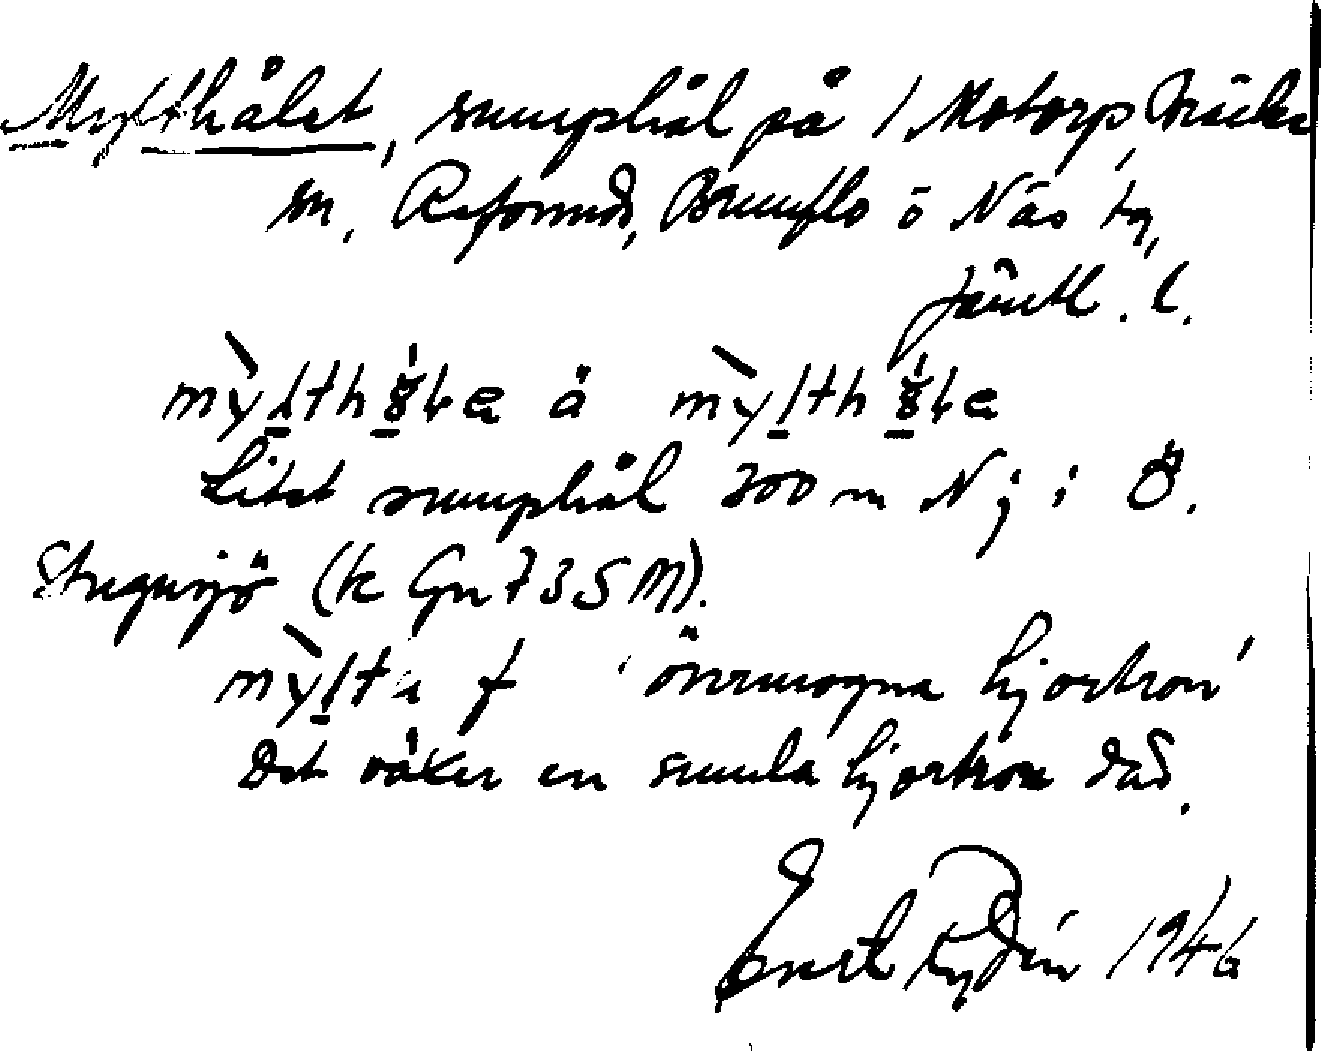 Mylthålet, sumphål på 1 Motorp, Bräcke
sn, Refsunds, Brunflo o Näs tg,
Jämtl. l.
mỳlthålæ å mỳlthålæ
Litet sumphål 300 m N j i Ö.
Stugusjö (k Gn 735 M).
mỳlta f 'övermogna hjortron'
Det växer en smula hjortron där.
Ernst Rydén 1946